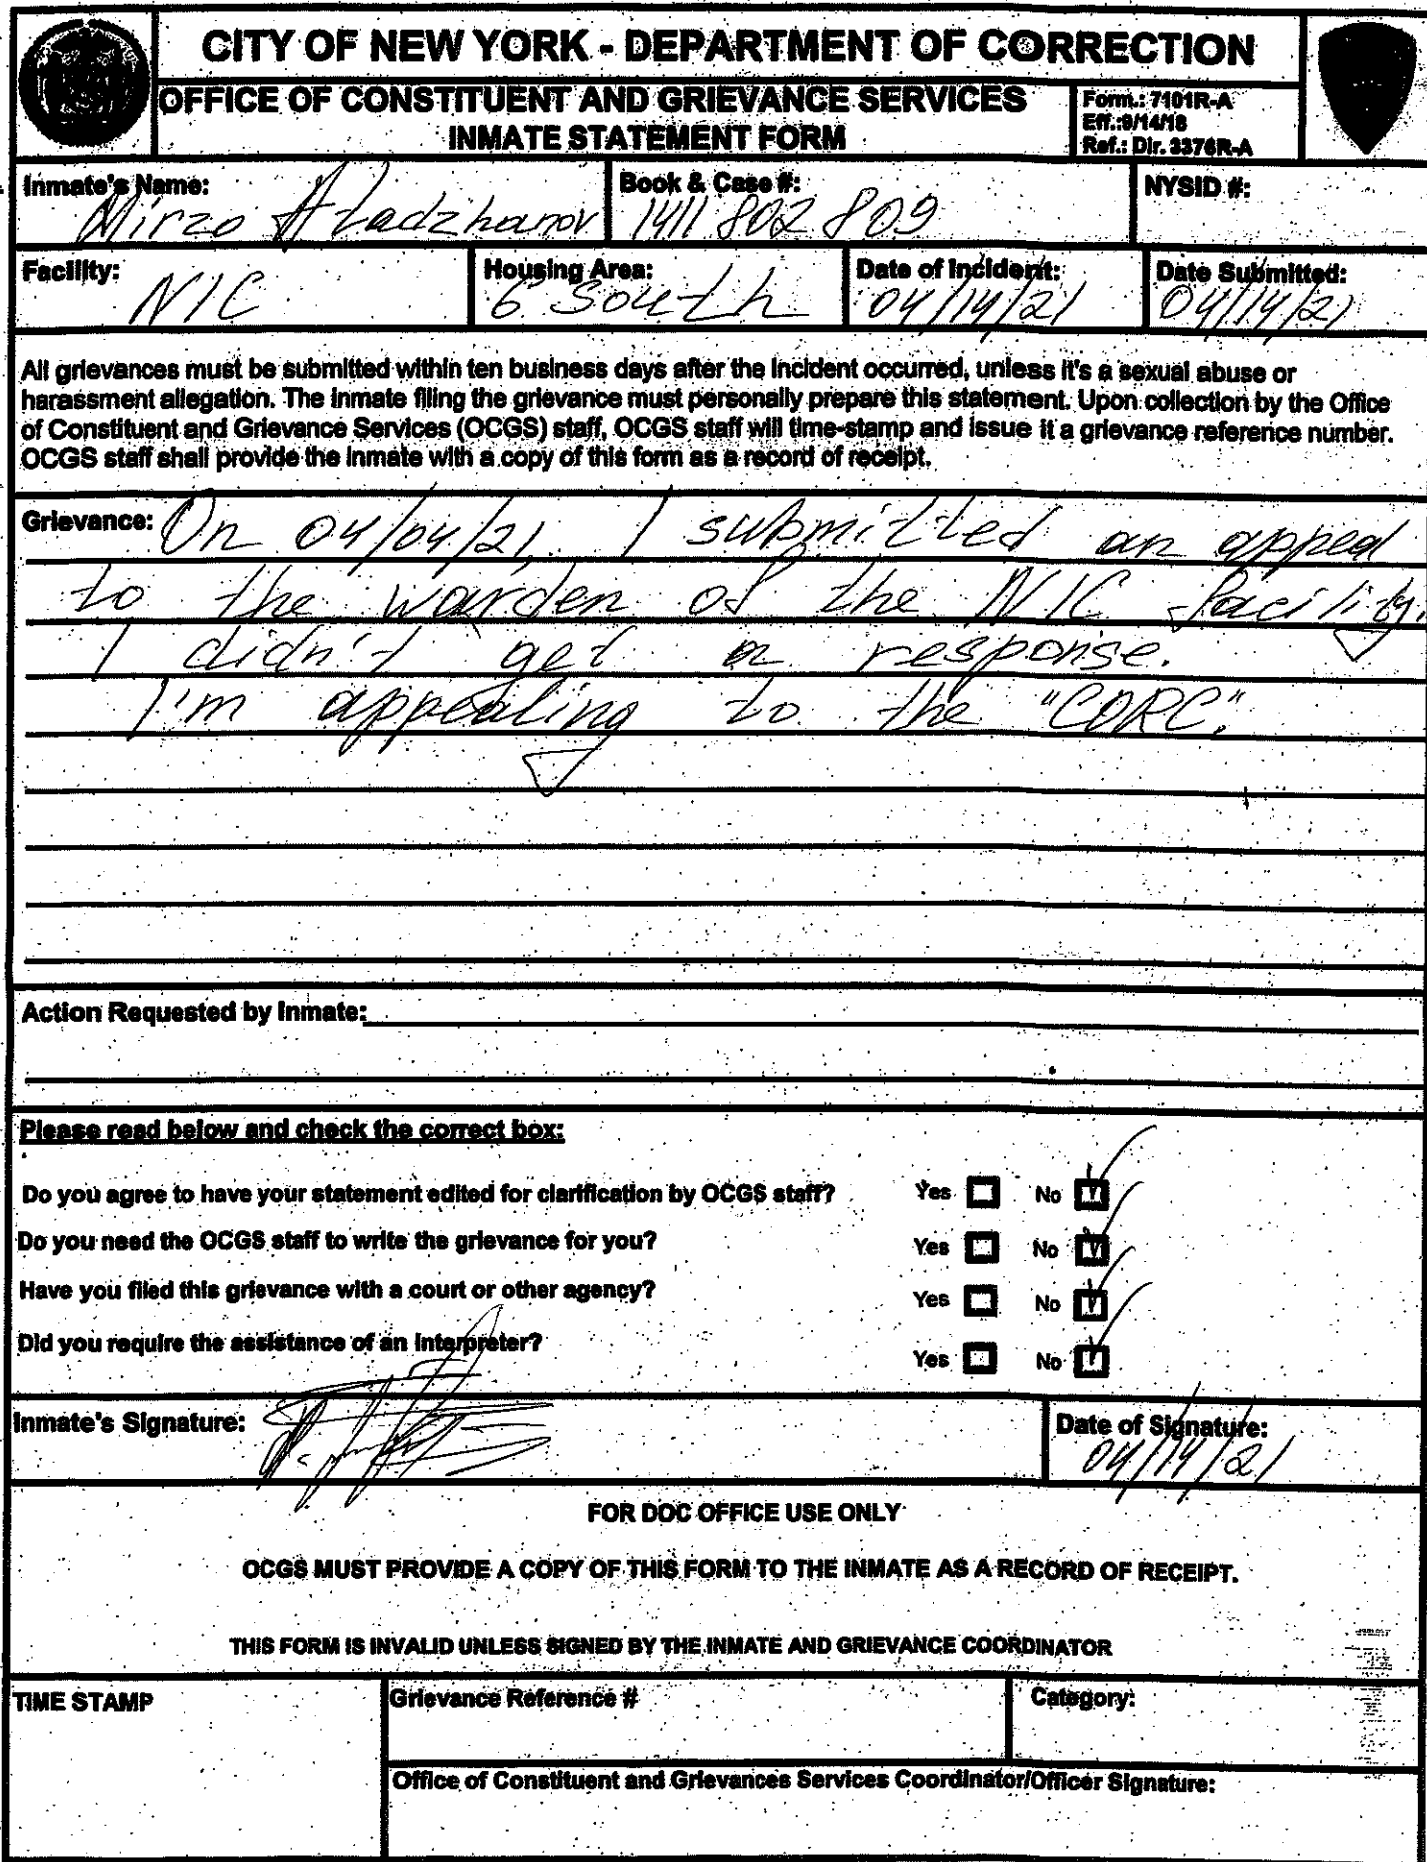 CITY OF NEW YORK - DEPARTMENT OF CORRECTION
OFFICE OF CONSTITUENT AND GRIEVANCE SERVICES
INMATE STATEMENT FORM
Form.: 7101R-A
Eff.:9/14/18
Ref.: Dir. 3376R-A
Inmate's Name:
Mirzo Atadzhanov
Book & Case #:
1411 802 809
NYSID #:
Facility:
NIC
Housing Area:
6 South
Date of Incident:
04/14/21
Date Submitted:
04/14/21
All grievances must be submitted within ten business days after the incident occurred, unless it's a sexual abuse or
harassment allegation. The inmate filing the grievance must personally prepare this statement. Upon collection by the Office
of Constituent and Grievance Services (OCGS) staff, OCGS staff will time-stamp and issue it a grievance reference number.
OCGS staff shall provide the inmate with a copy of this form as a record of receipt.
Grievance: On 04/04/21, I submitted an appeal
to the warden of the NIC facility.
I didn't get a response.
I'm appealing to the "CORC".
Action Requested by Inmate:
Please read below and check the correct box:
Do you agree to have your statement edited for clarification by OCGS staff? Yes No
Do you need the OCGS staff to write the grievance for you? Yes No
Have you filed this grievance with a court or other agency? Yes No
Did you require the assistance of an interpreter? Yes No
Inmate's Signature:
Date of Signature:
04/14/21
FOR DOC OFFICE USE ONLY
OCGS MUST PROVIDE A COPY OF THIS FORM TO THE INMATE AS A RECORD OF RECEIPT.
THIS FORM IS INVALID UNLESS SIGNED BY THE INMATE AND GRIEVANCE COORDINATOR
TIME STAMP
Grievance Reference #
Category:
Office of Constituent and Grievances Services Coordinator/Officer Signature: